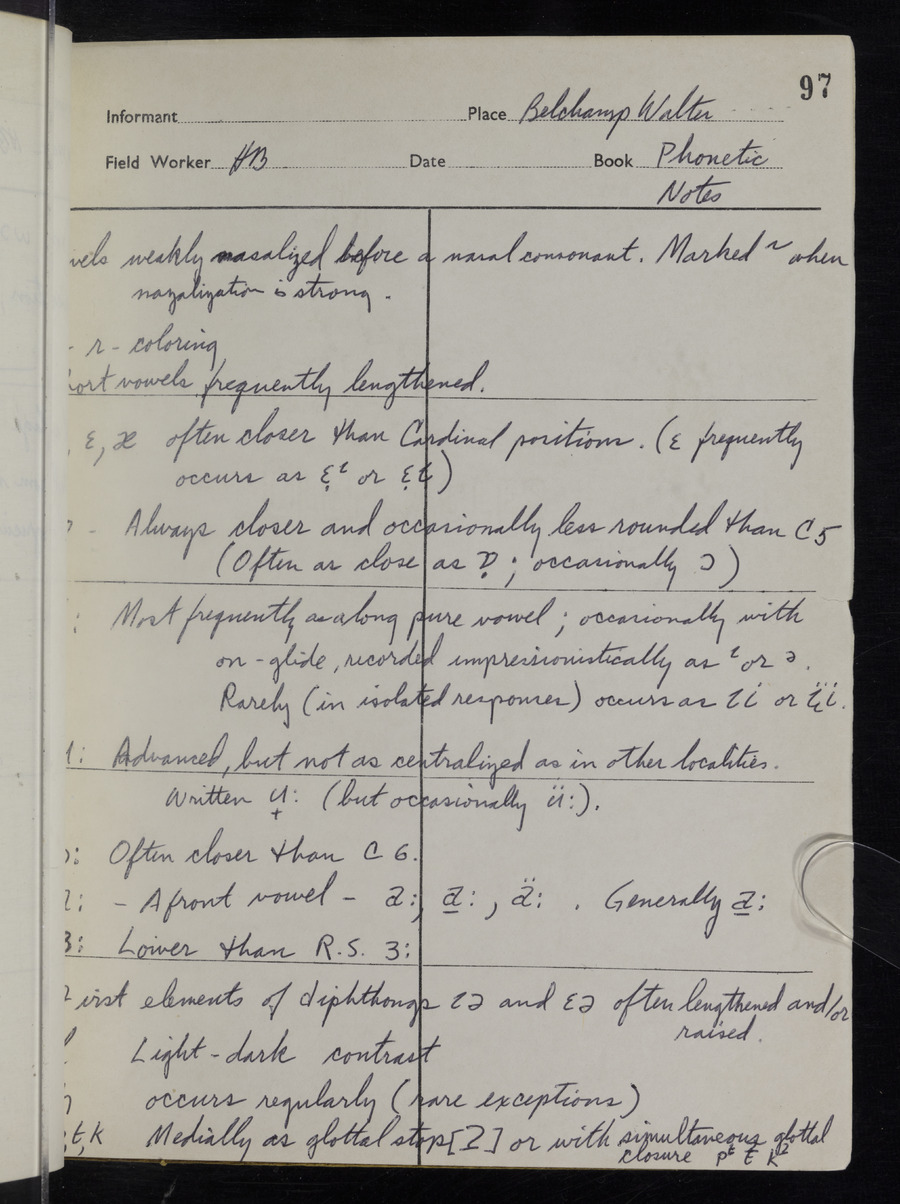 97
Informant Place Belchamp Walter
Field Worker HB Date Book Phonetic
Notes
vels weakly nasalized before a nasal consonant. Marked ~ when
nazalization is strong.
- r - coloring
hort vowels frequently lengthened.
, ɛ, æ often closer than Cardinal positions. (ɛ frequently
occurs as ɛ̣ᶥ or ɛ̣ɩ)
- Always closer and occasionally less rounded than C5
(Often as close as ɒ̣ ; occasionally ɔ)
: Most frequently as a long pure vowel ; occasionally with
on-glide, recorded impressionistically as ᶥ or ᵊ.
Rarely (in isolated responses) occurs as ɩi or ɩ̈i.
: Advanced, but not as centralized as in other localities.
Written u̟: (but occasionally ü:).
ɔ: Often closer than C 6.
: - A front vowel - a:, a̱:, ä: . Generally a̱:
ɜ: Lower than R.S. ɜ:
irst elements of diphthongs ɩə and ɛə often lengthened and/or
raised.
l Light-dark contrast
h occurs regularly (rare exceptions)
,t,k Medially as glottal stop [ʔ] or with simultaneous glottal
closure